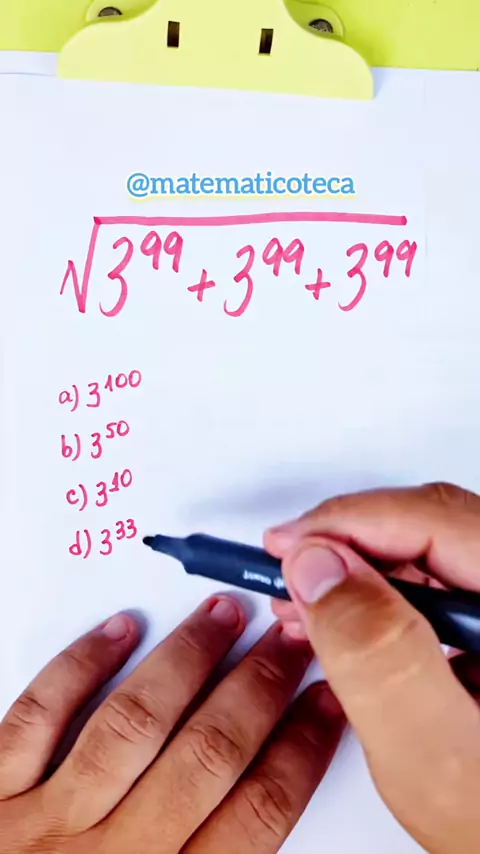 @matematicoteca
√3⁹⁹ + 3⁹⁹ + 3⁹⁹
a) 3¹⁰⁰
b) 3⁵⁰
c) 3¹⁰
d) 3³³